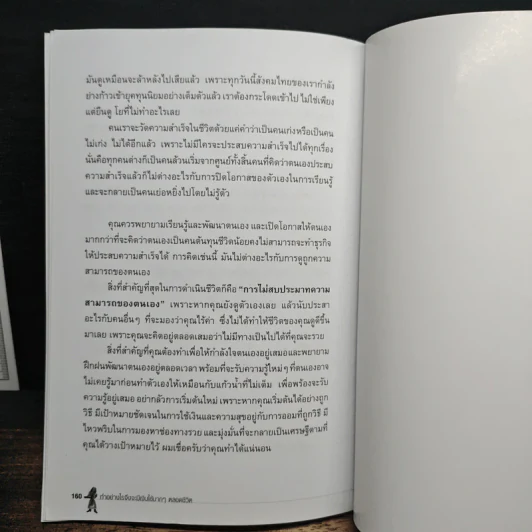 มันดูเหมือนจะล้าหลังไปเสียแล้ว เพราะทุกวันนี้สังคมไทยของเรากำลัง
ย่างก้าวเข้ายุคทุนนิยมอย่างเต็มตัวแล้ว เราต้องกระโดดเข้าไป ไม่ใช่เพียง
แต่ยืนดู โยที่ไม่ทำอะไรเลย
คนเราจะวัดความสำเร็จในชีวิตด้วยแค่คำว่าเป็นคนเก่งหรือเป็นคน
ไม่เก่ง ไม่ได้อีกแล้ว เพราะไม่มีใครจะประสบความสำเร็จไปได้ทุกเรื่อง
นั่นคือทุกคนต่างก็เป็นคนล้วนเริ่มจากศูนย์ทั้งสิ้นคนที่คิดว่าตนเองประสบ
ความสำเร็จแล้วก็ไม่ต่างอะไรกับการปิดโอกาสของตัวเองในการเรียนรู้
และจะกลายเป็นคนเย่อหยิ่งไปโดยไม่รู้ตัว
คุณควรพยายามเรียนรู้และพัฒนาตนเอง และเปิดโอกาสให้ตนเอง
มากกว่าที่จะคิดว่าตนเองเป็นคนต้นทุนชีวิตน้อยคงไม่สามารถจะทำธุรกิจ
ให้ประสบความสำเร็จได้ การคิดเช่นนี้ มันไม่ต่างอะไรกับการดูถูกความ
สามารถของตนเอง
สิ่งที่สำคัญที่สุดในการดำเนินชีวิตก็คือ "การไม่สบประมาทความ
สามารถของตนเอง" เพราะหากคุณยังดูตัวเองเลย แล้วนับประสา
อะไรกับคนอื่นๆ ที่จะมองว่าคุณไร้ค่า ซึ่งไม่ได้ทำให้ชีวิตของคุณดูดีขึ้น
มาเลย เพราะคุณจะคิดอยู่ตลอดเสมอว่าไม่มีทางเป็นไปได้ที่คุณจะรวย
สิ่งที่สำคัญที่คุณต้องทำเพื่อให้กำลังใจตนเองอยู่เสมอและพยายาม
ฝึกฝนพัฒนาตนเองอยู่ตลอดเวลา พร้อมที่จะรับความรู้ใหม่ๆ ที่ตนเองอาจ
ไม่เคยรู้มาก่อนทำตัวให้เหมือนกับแก้วน้ำที่ไม่เต็ม เพื่อพร้อมจะรับ
ความรู้อยู่เสมอ อย่ากลัวการเริ่มต้นใหม่ เพราะหากคุณเริ่มต้นได้อย่างถูก
วิธี มีเป้าหมายชัดเจนในการใช้เงินและความสุขอยู่กับการออมที่ถูกวิธี มี
ไหวพริบในการมองหาช่องทางรวย และมุ่งมั่นที่จะกลายเป็นเศรษฐีตามที่
คุณได้วางเป้าหมายไว้ ผมเชื่อครับว่าคุณทำได้แน่นอน
160 ทำอย่างไรจึงจะมีเงินใช้มากๆ ตลอดชีวิต